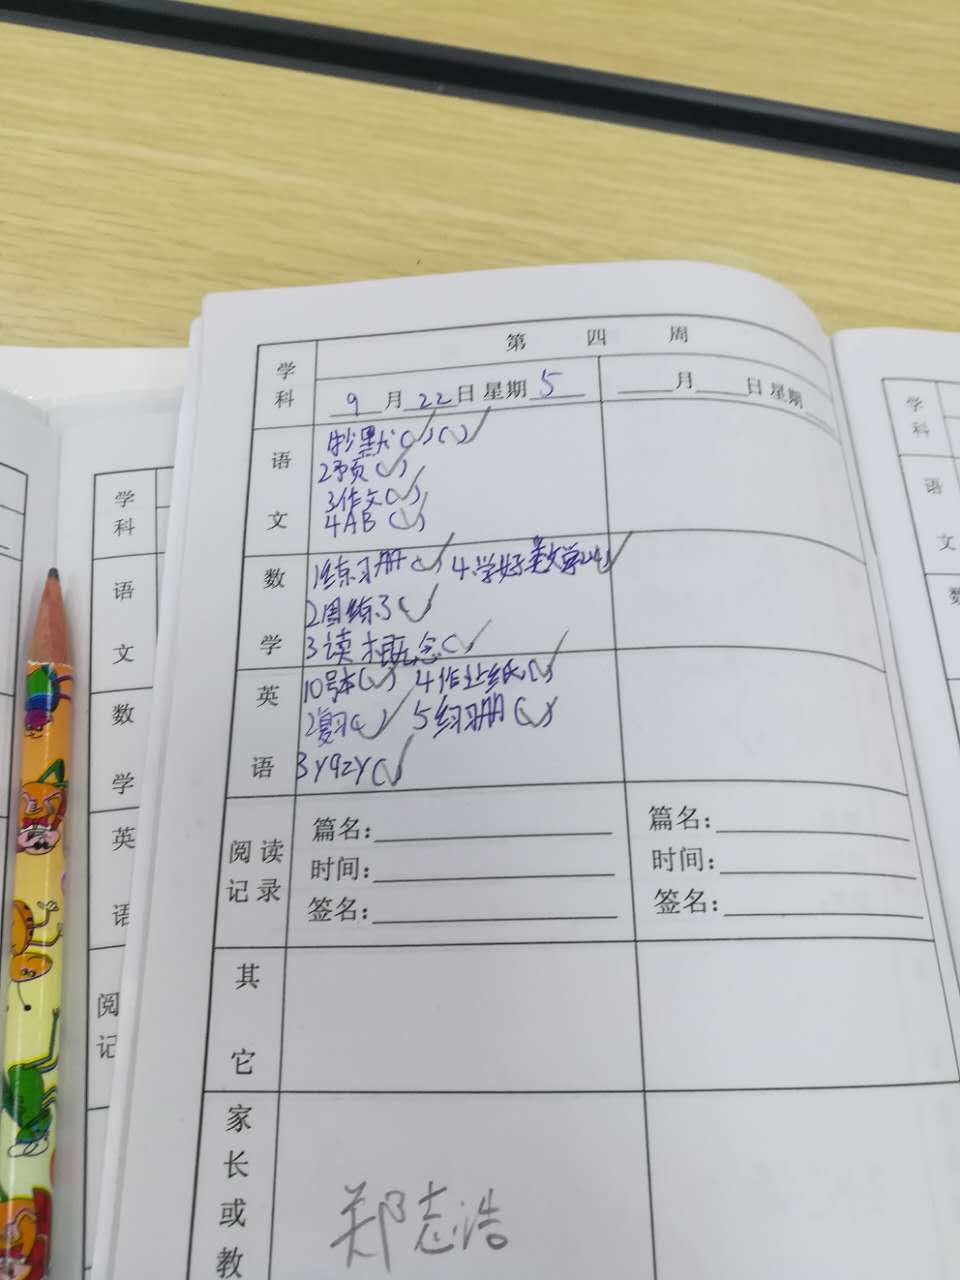 学科
第 四 周
9月22日星期5
月 日星期
语文
1抄默( )( )
2予页( )
3作文( )
4AB( )
数学
1练习册( ) 4.学好数学
2周练3( )
3读概念( )
英语
10号本( ) 4作业纸( )
2复习( ) 5练习册( )
3Y9ZY( )
阅读记录
篇名:
时间:
签名:
篇名:
时间:
签名:
其它
家长或教
郑志浩
学科
语文
数学
英语
阅
记
学科
语
文
数